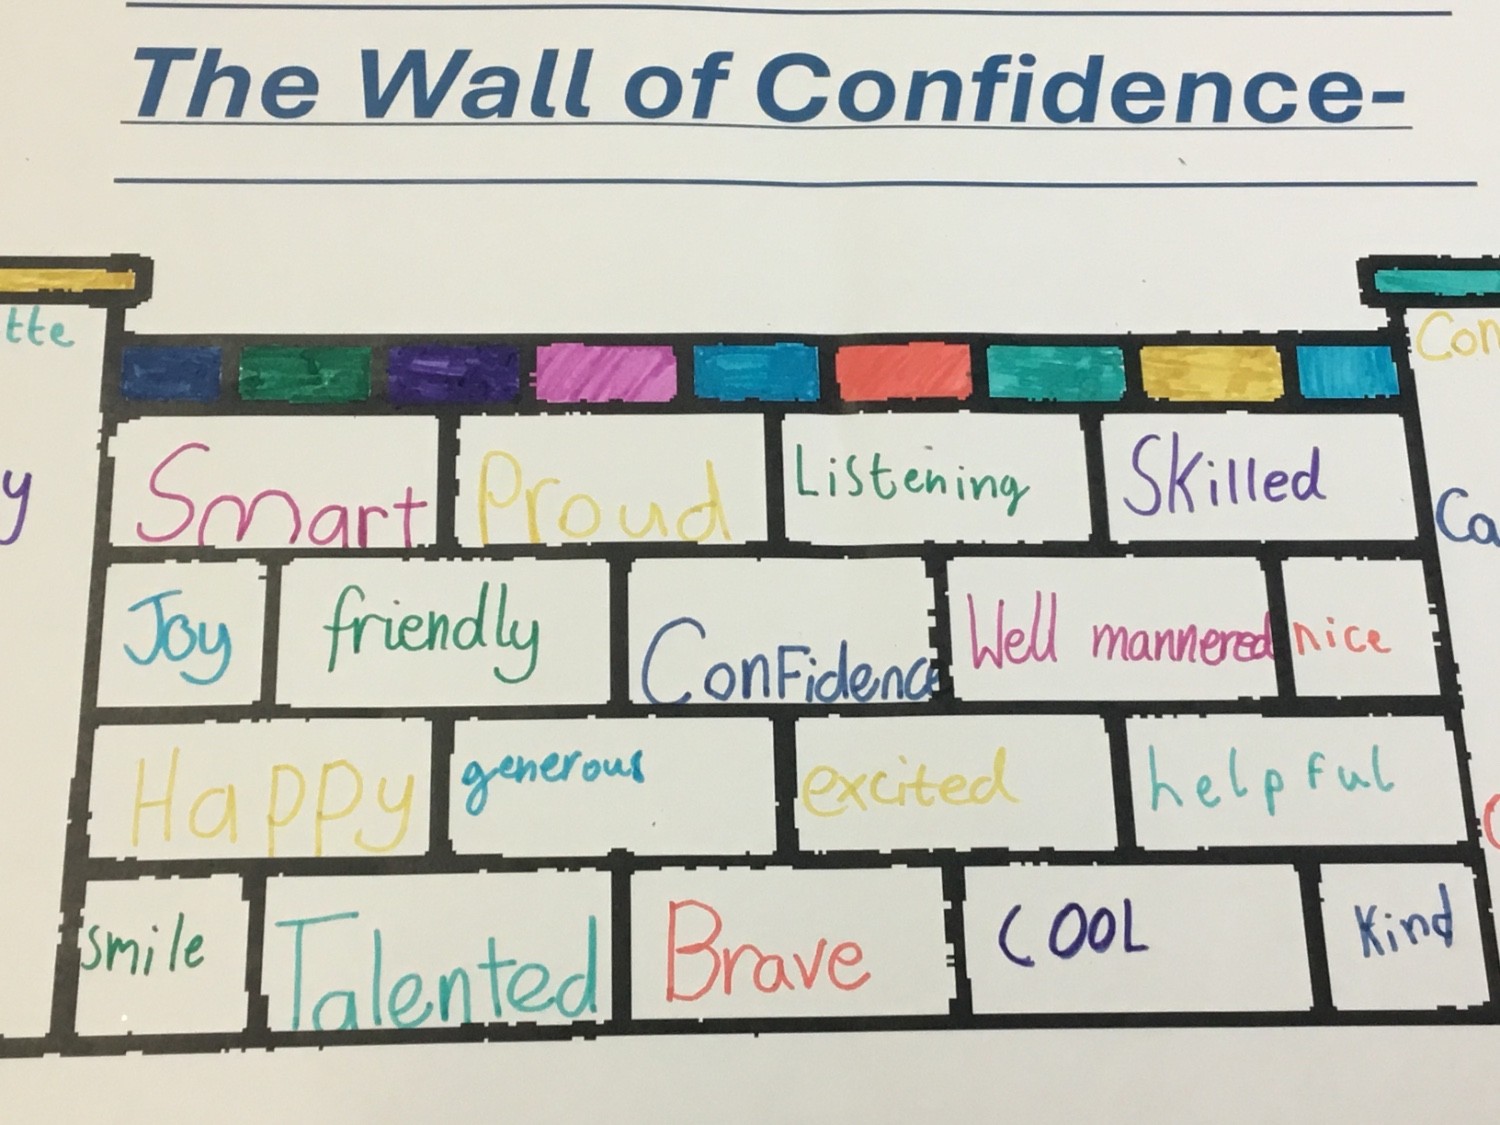 The Wall of Confidence-
Smart Proud Listening Skilled
Joy friendly Confidence Well mannered nice
Happy generous excited helpful
smile Talented Brave COOL Kind